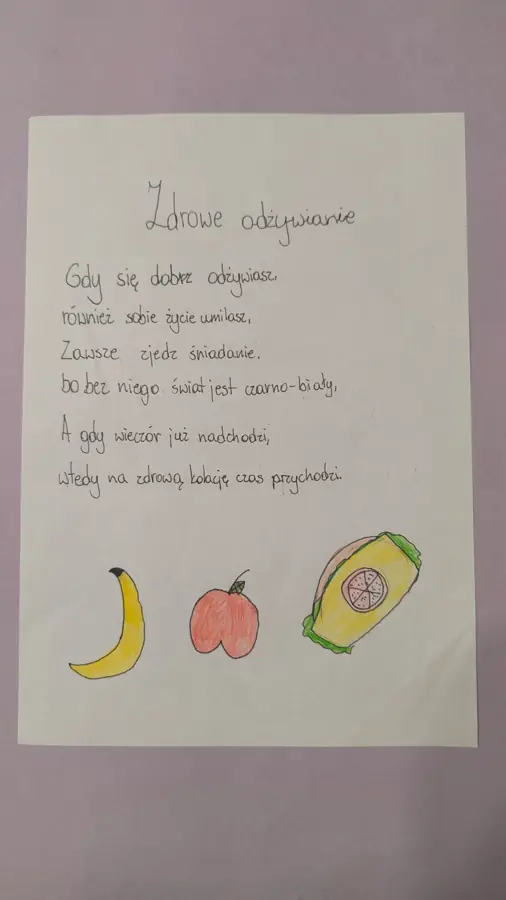 Zdrowe odżywianie
Gdy się dobrz odżywiasz,
również sobie życie umilasz,
Zawsze zjedz śniadanie.
bo bez niego świat jest czarno-biały,
A gdy wieczór już nadchodzi,
wtedy na zdrową kolację czas przychodzi.